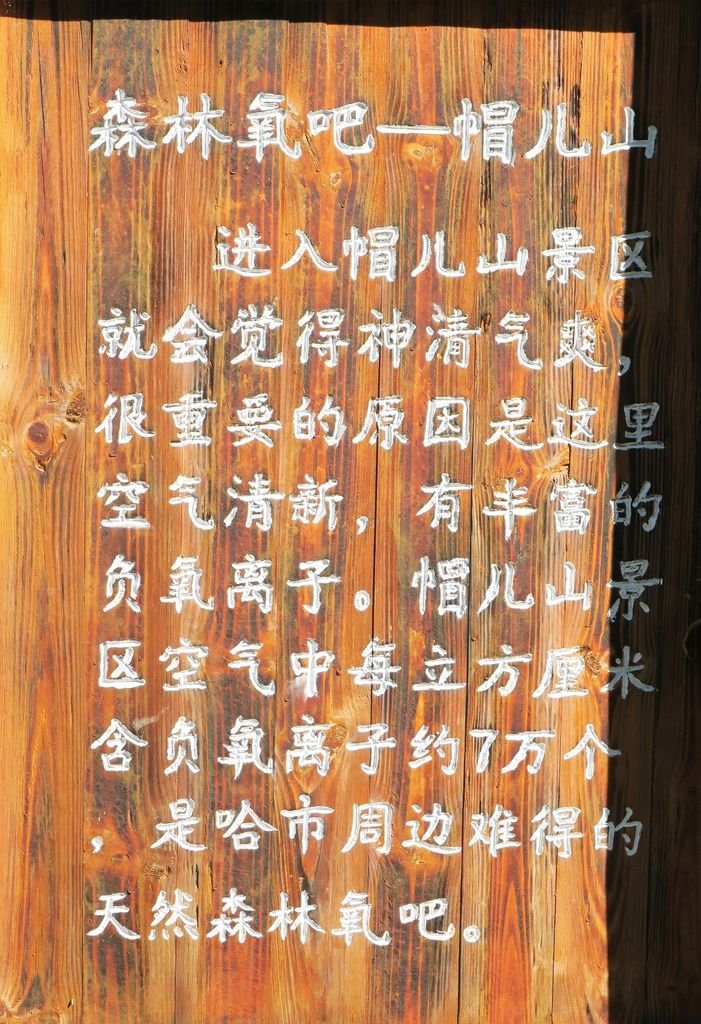 森林氧吧—帽儿山
进入帽儿山景区
就会觉得神清气爽，
很重要的原因是这里
空气清新，有丰富的
负氧离子。帽儿山景
区空气中每立方厘米
含负氧离子约7万个
，是哈市周边难得的
天然森林氧吧。